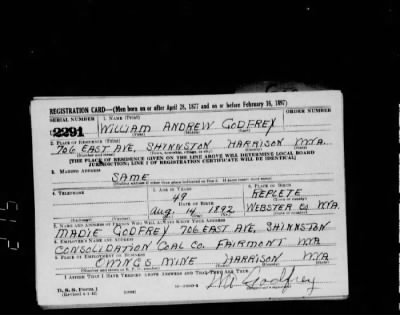 REGISTRATION CARD—(Men born on or after April 28, 1877 and on or before February 16, 1897)
SERIAL NUMBER 1. NAME (Print) ORDER NUMBER
2291 WILLIAM ANDREW GODFREY
(First) (Middle) (Last)
2. PLACE OF RESIDENCE (Print)
706 EAST AVE, SHINNSTON HARRISON W.VA.
(THE PLACE OF RESIDENCE GIVEN ON THE LINE ABOVE WILL DETERMINE LOCAL BOARD
JURISDICTION; LINE 2 OF REGISTRATION CERTIFICATE WILL BE IDENTICAL)
3. MAILING ADDRESS
SAME
4. TELEPHONE 5. AGE IN YEARS 6. PLACE OF BIRTH
49 REPLETE
DATE OF BIRTH
Aug. 14, 1892 WEBSTER CO W.VA.
7. NAME AND ADDRESS OF PERSON WHO WILL ALWAYS KNOW YOUR ADDRESS
MADIE GODFREY 706 EAST AVE, SHINNSTON
8. EMPLOYER'S NAME AND ADDRESS
CONSOLIDATION COAL CO. FAIRMONT W.VA
9. PLACE OF EMPLOYMENT OR BUSINESS
MINE HARRISON W.VA
I AFFIRM THAT I HAVE VERIFIED ABOVE ANSWERS AND THAT THEY ARE TRUE.
D. S. S. Form 1
Godfrey